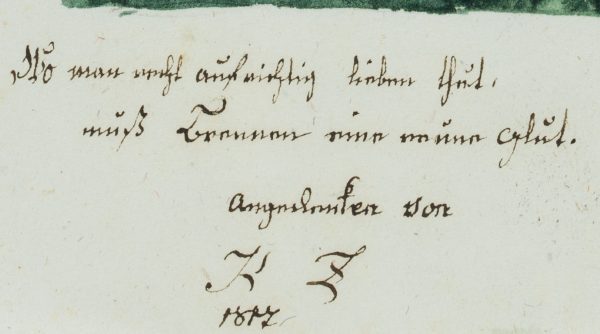 Wo man recht aufrichtig lieben thut.
muß Brennen eine reine Glut.
Angedenken von
K Z
1817.